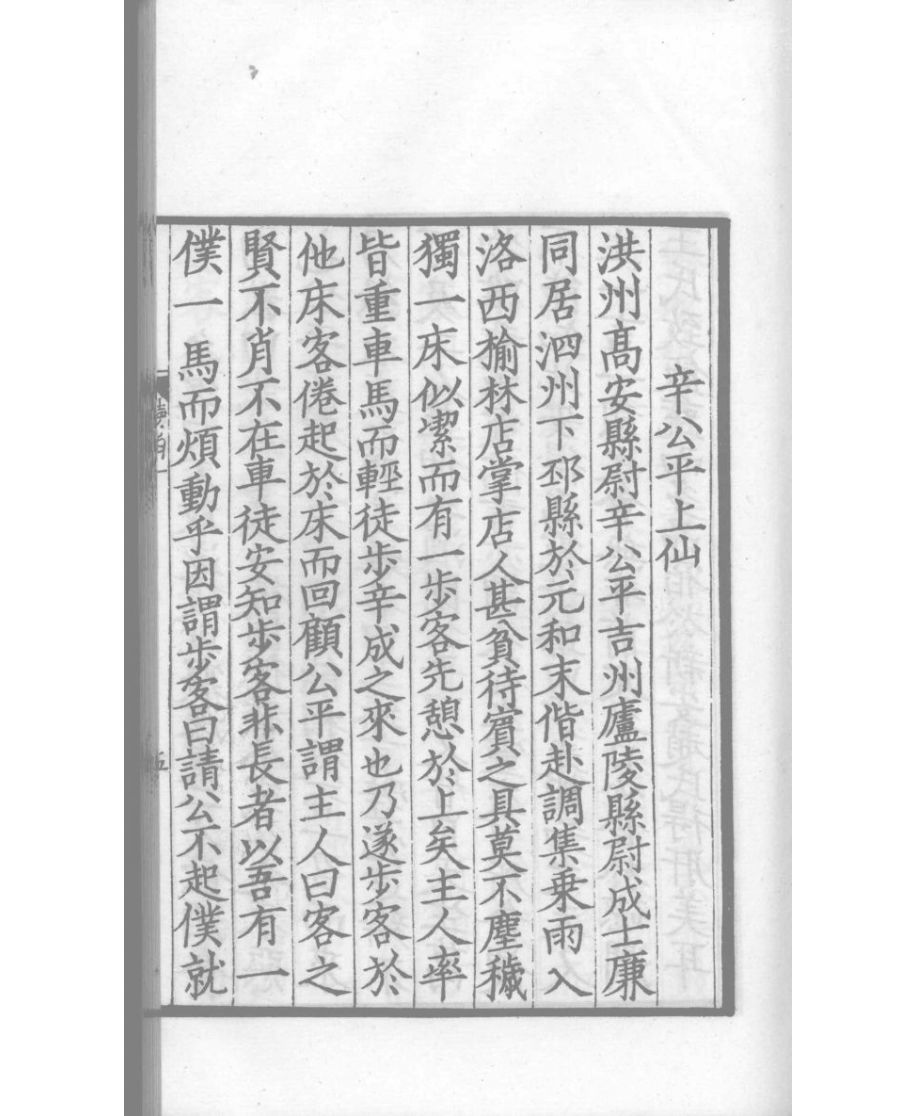 辛公平上仙
洪州髙安縣尉辛公平吉州廬陵縣尉成士廉
同居泗州下邳縣於元和末偕赴調集乗雨入
洛西榆林店掌店人甚貧待賓之具莫不塵穢
獨一床似潔而有一步客先憩於上矣主人率
皆重車馬而輕徒步辛成之來也乃遂步客於
他床客倦起於床而回顧公平謂主人曰客之
賢不肖不在車徒安知步客非長者以吾有一
僕一馬而煩動乎因謂步客曰請公不起僕就